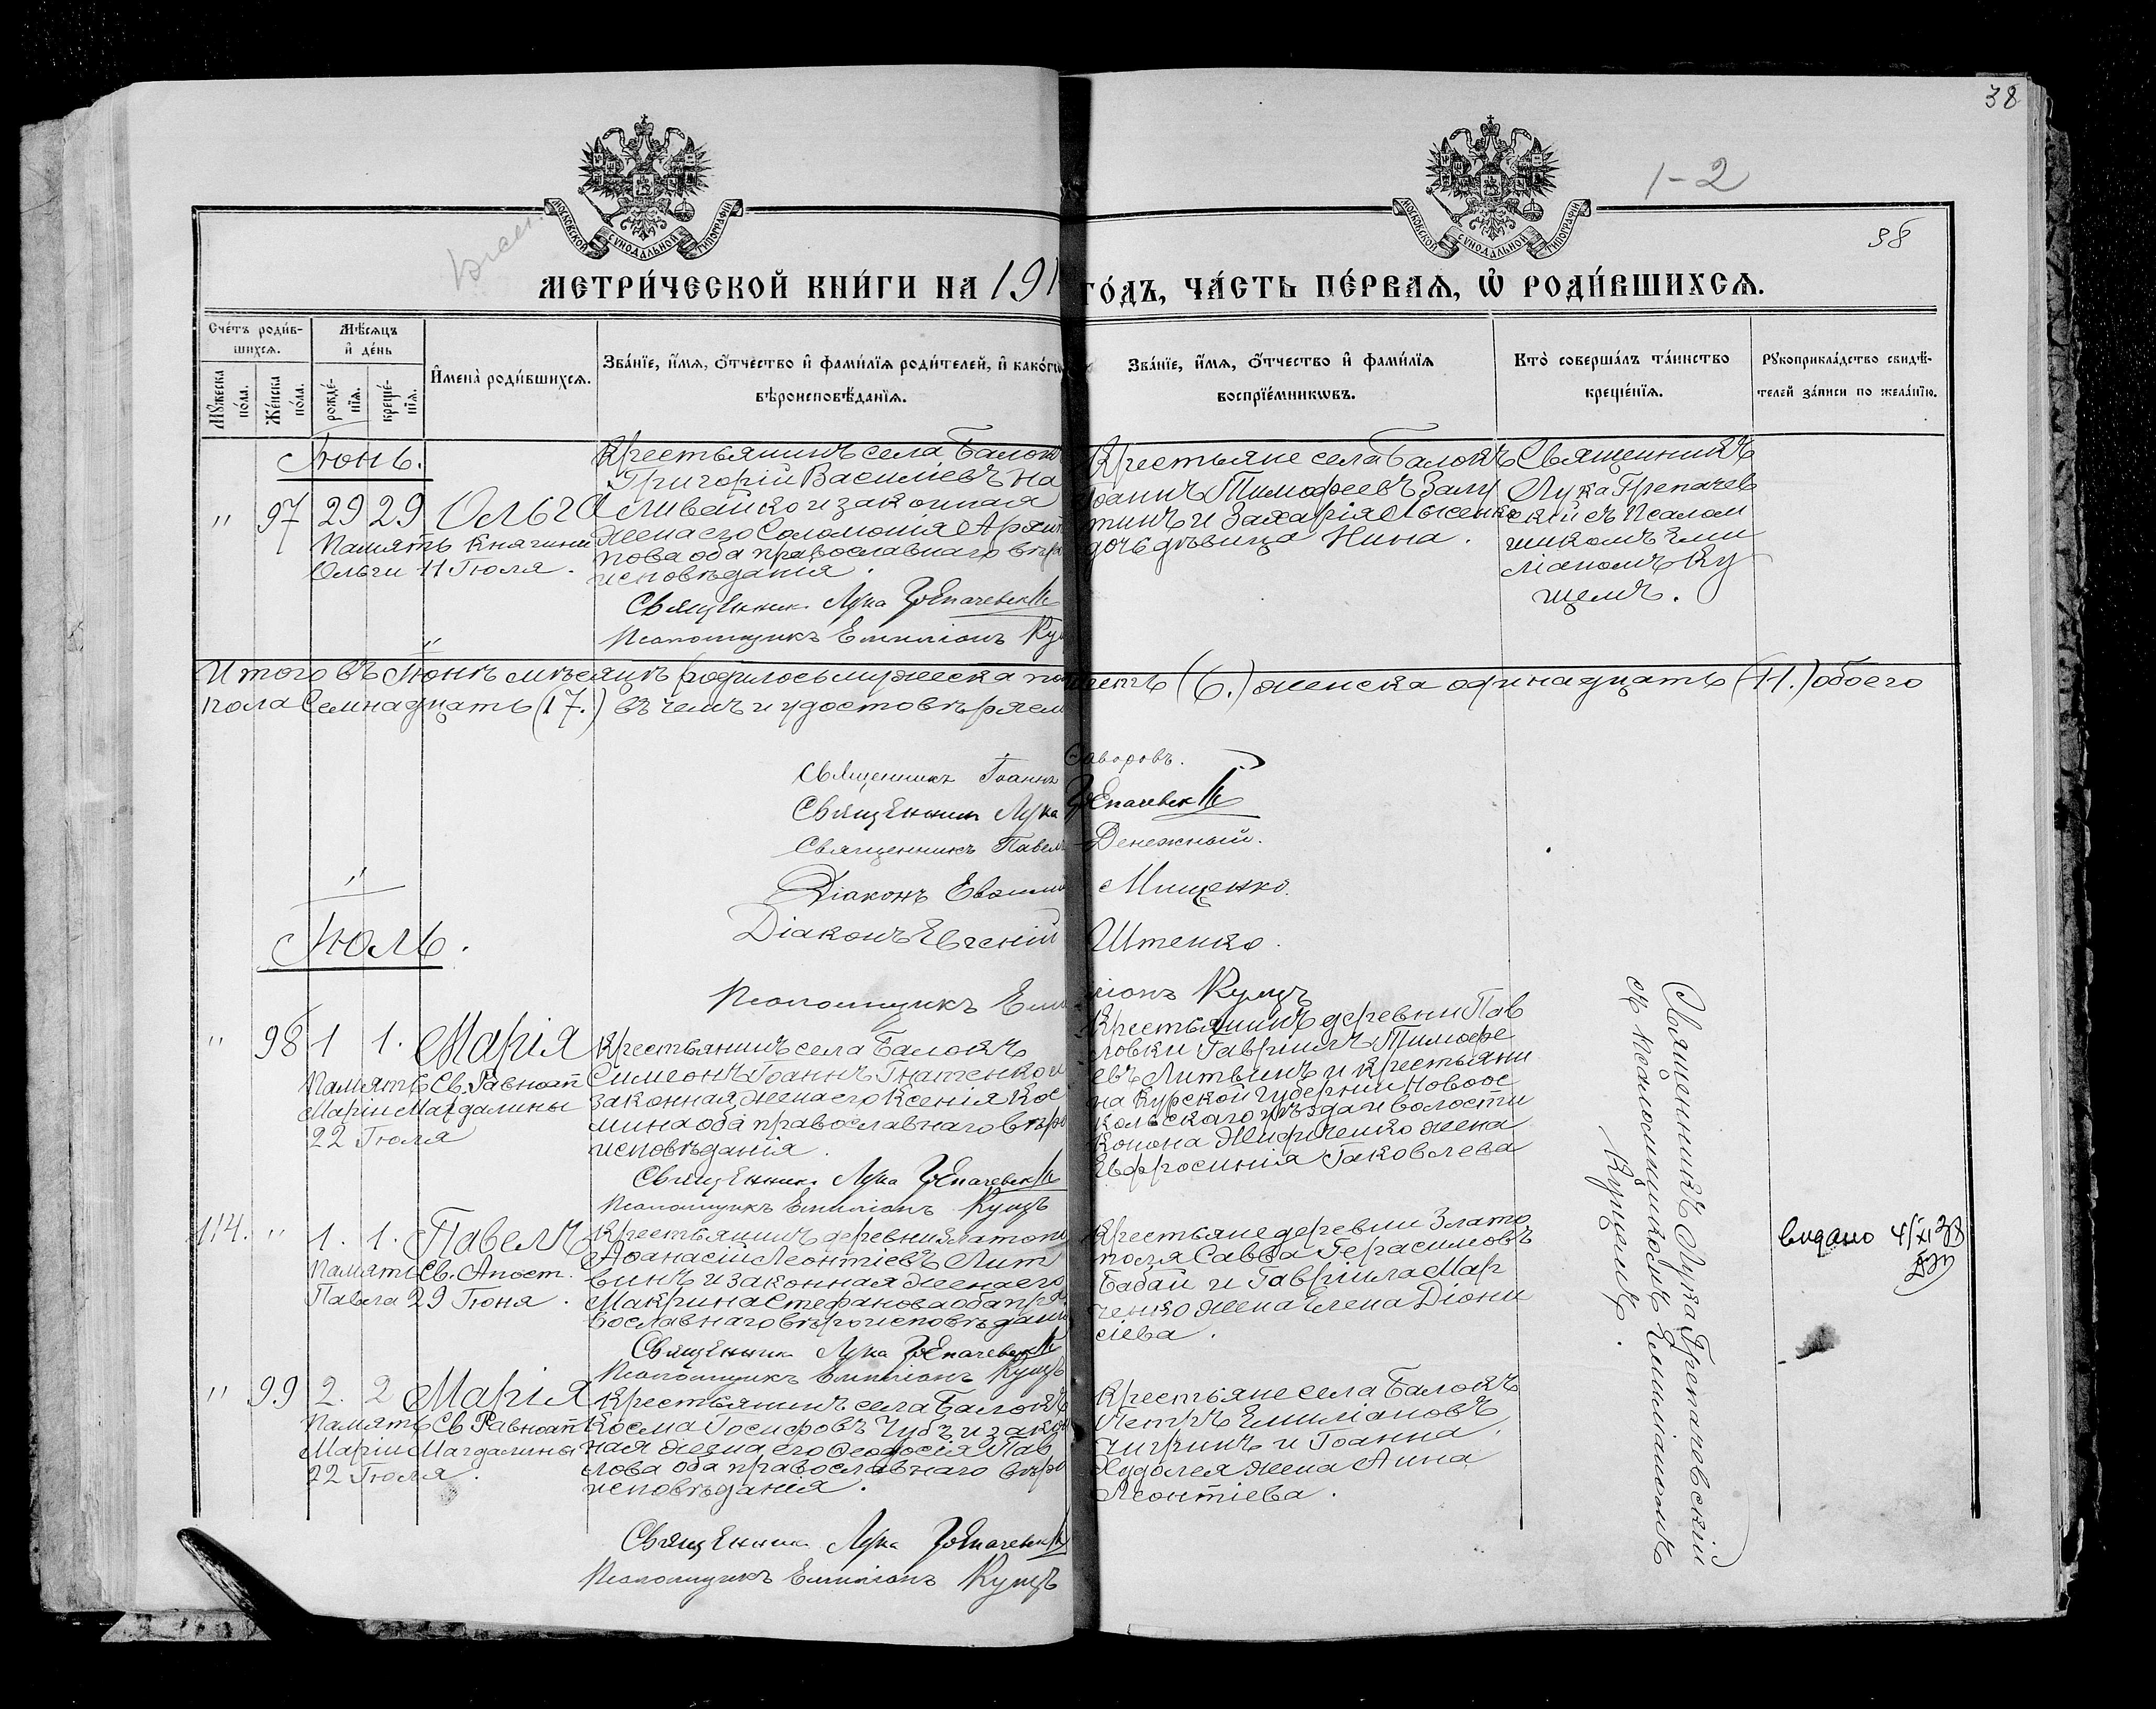 38
1-2
38
МОСКОВСКОЙ СѴНОДАЛЬНОЙ ТИПОГРАФИИ
МОСКОВСКОЙ СѴНОДАЛЬНОЙ ТИПОГРАФИИ
МЕТРИ́ЧЕСКОЙ КНИ́ГИ НА 191 ГО́ДЪ, ЧА́СТЬ ПЕ́РВАѦ, Ѡ҆ РОДИ́ВШИХСѦ.
Сче́тъ роди́в-
шихсѧ.
Мѣ́сѧцъ
и҆ де́нь
Мꙋ́жеска по́ла.
Же́нска по́ла.
рожде́-нїѧ.
креще́-нїѧ.
И҆мена̀ роди́вшихсѧ.
Зва́нїе, и҆́мѧ, ѻ҆́тчество и҆ фами́лїѧ роди́телей, и҆ како́гѡ
вѣроисповѣ́данїѧ.
Зва́нїе, и҆́мѧ, ѻ҆́тчество и҆ фами́лїѧ
воспрїе́мникѡвъ.
Кто̀ соверша́лъ та́инство
креще́нїѧ.
Рꙋкоприкла́дство свидѣ́-
телей за́писи по жела́нїю.
Іюнь.
" 97 29 29 Ольга
Память Княгини
Ольги 11 Іюля.
Крестьянинъ села Балок
Григорій Василіевъ На
ливайко и законная
жена его Соломонія Архип
пова оба православнаго вѣро
исповѣданія.
Священник Лука Грепачевскій
Псаломщикъ Емиліанъ Кущ
Крестьяне села Балокъ
Іоаннъ Тимофеевъ Залу
тинъ и Захарія Лысенко
дочь дѣвица Нина.
Священникъ
Лука Грепачев
скій съ Псалом
щикомъ Еми
ліаномъ Ку
щемъ.
"
Итого въ Іюнѣ мѣсяцѣ родилось мужеска по шесть (6.) женска одинадцать (11.) обоего
пола Семнадцать (17.) въ чемъ и удостовѣряем
Священникъ Іоаннъ Саворовъ.
Священник Лука Грепачевскій
Священникъ Павелъ Денежный.
Діаконъ Мищенко.
Діаконъ Евгеній Штенко.
Псаломщикъ Емиліанъ Кущъ
"
Іюль.
" 98 1 1. Марія
Память Св. Равноап
Маріи Магдалины
22 Іюля
Крестьянинъ села Балокъ
Симеонъ Іоаннъ Гнатенко и
законная жена его Ксенія Кос
мина оба православнаго вѣро
исповѣданія.
Священник Лука Грепачевскій
Псаломщикъ Емиліанъ Кущъ
Крестьянинъ деревни Пав
ловки Гавріилъ Тимофе
евъ Литвинъ и крестьяни
на Курской губерніи Новоос
кольскаго уѣзда и волости
Конона жена
Евфросинія Іаковлева
114. " 1. 1. Павелъ
Память Св. Апост.
Павла 29 Іюня.
Крестьянинъ деревни Златопо
Аѳанасій Леонтіевъ Лит
винъ и законная жена его
Макрина Стефанова оба пра
вославнаго вѣроисповѣдан
Священник Лука Грепачевскій
Псаломщикъ Емиліанъ Кущъ
Крестьяне деревни Злато
поля Савва Герасимовъ
Бабай и Гавріила Мар
ченко жена Елена Діони
сіева.
видано 4/XI 38
" 99 2. 2 Марія
Память Св Равноап
Маріи Магдалины
22 Іюля.
Крестьянинъ села Балокъ
Косма Іосифовъ Чубъ и закон
ная жена его Ѳеодосія Пав
лова оба православнаго вѣро
исповѣданія.
Священник Лука Грепачевскій
Псаломщикъ Емиліанъ Кущъ
Крестьяне села Балокъ
Петръ Емиліановъ
Чигринъ и Іоанна
Худолея жена Анна
Леонтіева.
Священникъ Лука Грепачевскій
съ псаломщикомъ Емиліаномъ
Кущемъ.